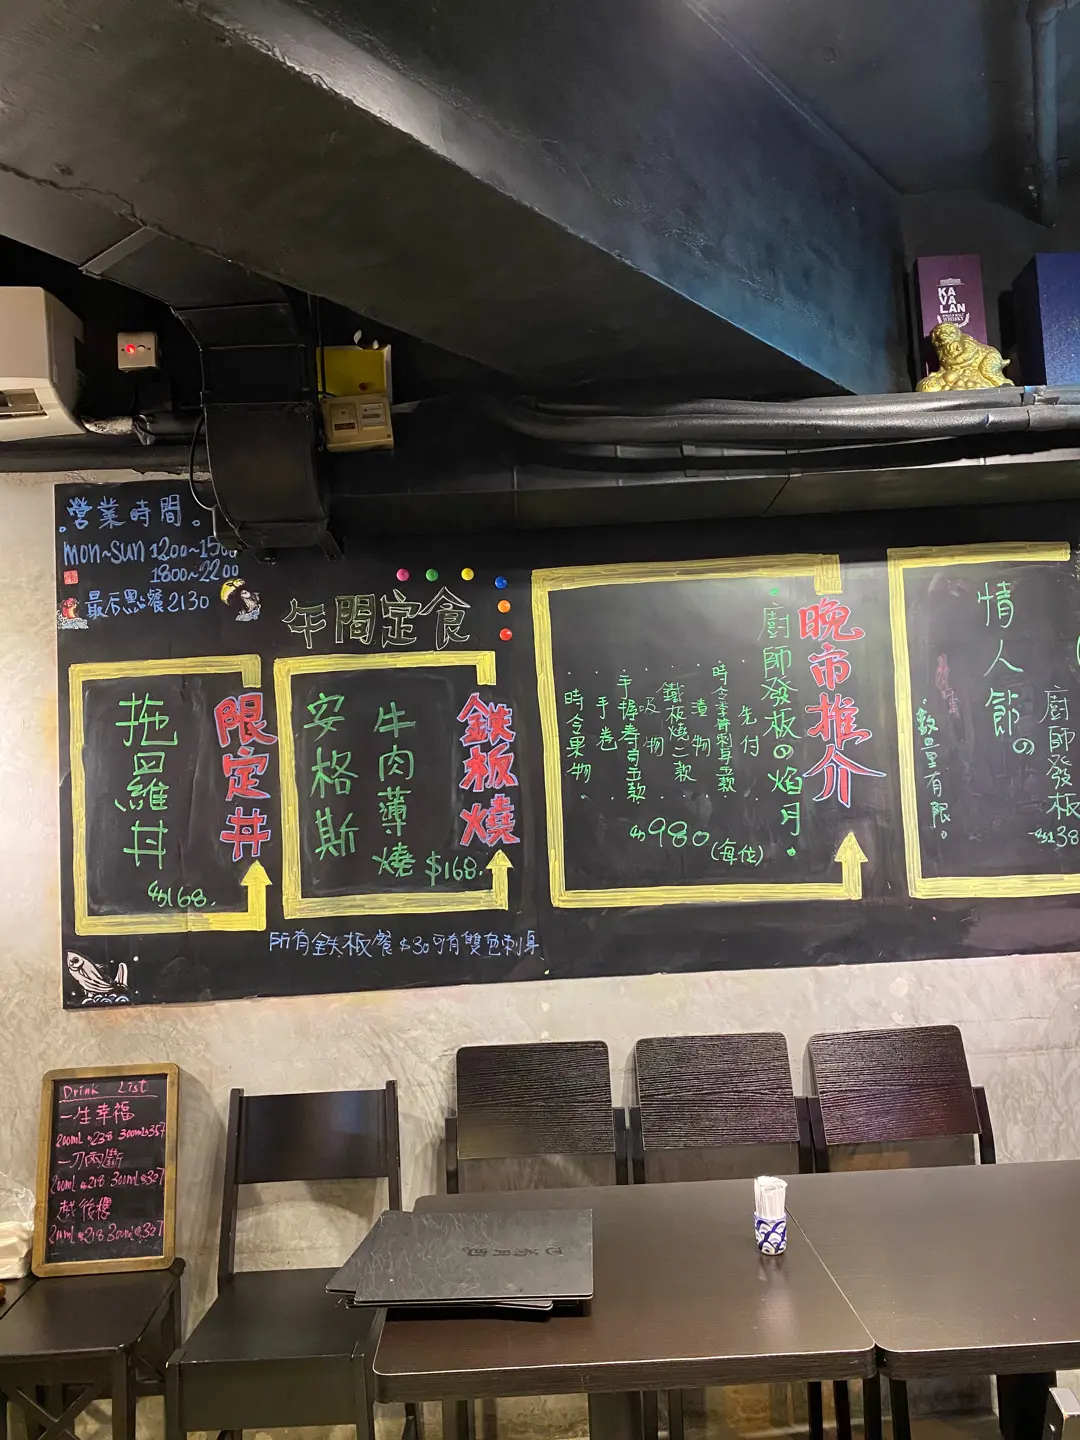 營業時間。
mon~sun 1200~1500
1800~2200
最后點餐2130
午間定食
限定丼
拖羅丼
$168.
鉄板燒
安格斯
牛肉薄燒 $168.
所有鉄板餐$30可有雙色刺身
晚市推介
廚師發板の焰月.
先付
時令季節刺身五款
漬物
鐵板燒二款
吸物
手握壽司五款
手卷
時令果物
$980(每位)
情人節の
廚師發板
$138
數量有限。
KA
VA
LAN
WHISKY
Drink List
一生幸福
200ml $238 300ml $357
一刀兩斷
200ml $218 300ml $327
越後櫻
200ml $218 300ml $327